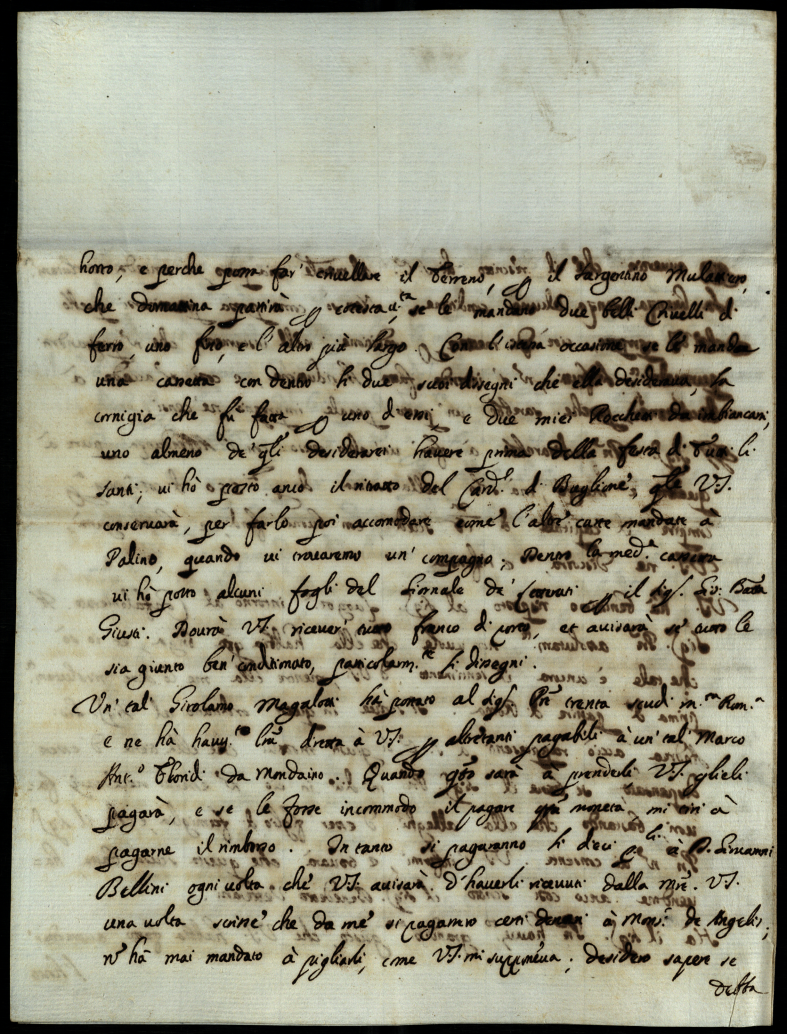 horto, e perche possa far' crivellare il terreno, il Sargentino Mulattiero,
che domattina partirà p cotesta v.ta se le mandano due belli Crivelli di
ferro, uno fitto, e l'altro più largo. Con l'istessa occasione se le manda
una cassetta con dentro li due suoi disegni che ella desiderava, la
cornigia che fu fatta p uno d'essi, e due miei Rocchetti da imbiancarsi,
uno almeno de' q.li desiderarei havere prima della festa di Tutti li
Santi; vi hò posto anco il ritratto del Card.l di Buglione, q.le V.S.
conservarà, per farlo poi accomodare come l'altre carte mandate à
Palino, quando vi trovaremo un' compagno. Dentro la med.a cassetta
vi hò posto alcuni fogli del Giornale de' Letterati p il Sig.r Gio: Batta
Giusti. Dovrà V.S. ricever' tutto franco di porto, et avisarà se' tutto le
sia giunto ben' conditionato, particolarm.te li disegni.
Un' tal' Girolamo Magalotti hà portato al Sig.r Pre trenta scudi m.ta Rom.a
e ne hà havu.to lra diretta à V.S. p altretanti pagabili à un' tal' Marco
Ant.o Floridi da Mondaino. Quando q.sto sarà à prenderli V.S. glieli
pagarà, e se le fosse incommodo il pagare q.sta moneta, mi tiri à
pagarne il rimborso. In tanto si pagaranno li dieci à D. Giovanni
Bellini ogni volta che V.S. avisarà d'haverli ricevuti dalla Mre. V.S.
una volta scrisse che da me si pagassero certi denari à Mons.r de Angelis;
nè hà mai mandato à pigliarli, come V.S. mi supponeva; desidero sapere se